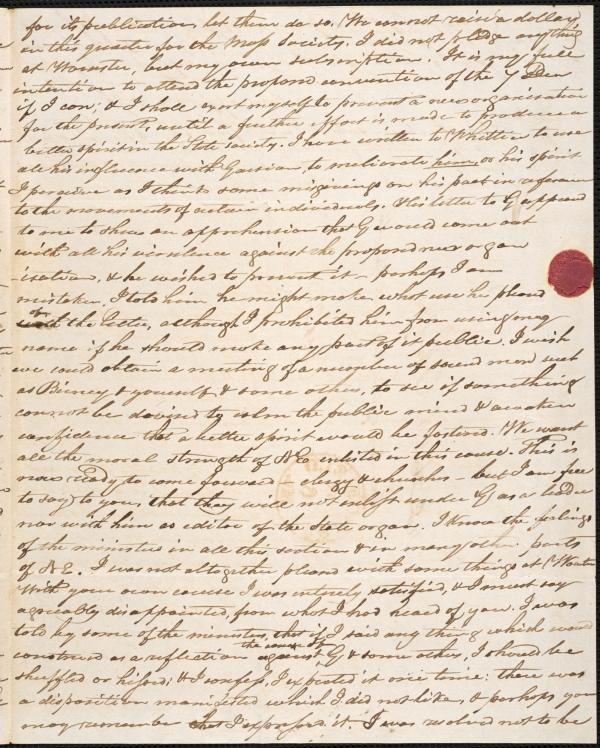 for its publication, let them do so. We cannot raise a dollar
in this quarter for the Mass Society. I did not pledge anything
at Worcester, but my own subscription. It is my full
intention to attend the proposed convention of the 7
if I can; & I shall exert myself to prevent a new organisation
for the present, until a further effort is made to produce a
better spirit in the State Society. I have written to Whittier to use
all his influence with Garrison, to meliorate him, or his spirit
I perceive as I think some misgivings on his part in reference
to the movements of certain individuals. & his letter to G appeared
to me to show an apprehension that G would come out
with all his virulence against the proposed new organ
isation, & he wished to prevent it – perhaps I am
mistaken. I told him he might make what use he pleased
of the letter, although I prohibited him from using my
name if he should make any part of it public. I wish
we could obtain a meeting of a number of sound men such
as Birney & yourself, & some others, to see if something
cannot be devised to calm the public mind & awaken
confidence that a better spirit would be fostered. We want
all the moral strength of N E enlisted in this cause. This is
now ready to come forward – clergy & churches – but I am free
to say to you, that they will not enlist under G as a leader
nor with him as editor of the State organ. I know the feelings
of the ministers in all this section & in many other parts
of N E. I was not altogether pleased with some things at Worcester
With your own course I was entirely satisfied, & I must say
agreeably disappointed, from what I had heard of you. I was
told by some of the ministers, that if I said any thing which would
construed as a reflection against the course of G & some others, I should be
shuffled or hissed; & I confess, I expected it one time: there was
a disposition manifested which I did not like, & perhaps you
may remember that I expressed it. I was resolved not to be